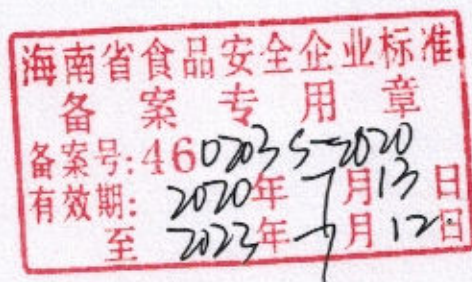 海南省食品安全企业标准
备案专用章
备案号:460203S-2020
有效期:2020年7月13日
至2023年7月12日